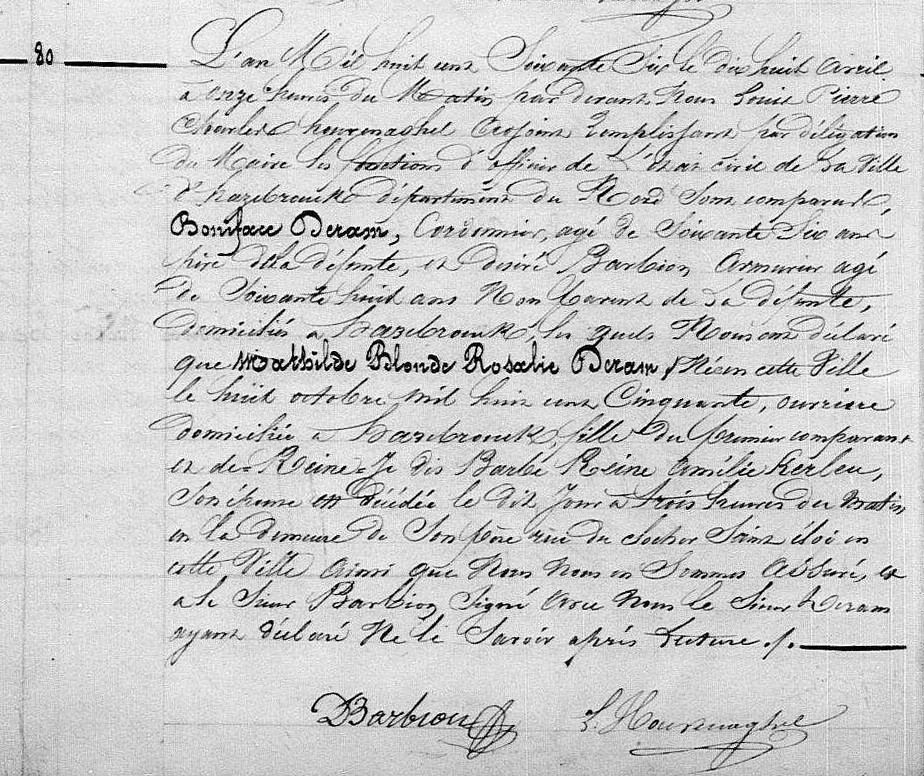 80
L'an Mil huit cent Soixante Six le dix huit avril
à onze heures du Matin par devant Nous Louis Pierre
Charles houvenaghel adjoint remplissant par délégation
du Maire les fonctions d'officier de L'état civil de la Ville
d'hazebrouck département du Nord Sont comparus,
Boniface Deram, Cordonnier, agé de Soixante Six ans
père de la défunte, et désiré Barbion armurier agé
de Soixante huit ans Non parent de la défunte,
domiciliés à hazebrouck, les quels Nous ont déclaré
que Mathilde Blonde Rosalie Deram, Née en cette Ville
le huit octobre mil huit cent Cinquante, ouvrière
domiciliée à hazebrouck, fille du premier comparant
et de Reine Je dis Barbe Reine Amélie Kerleu,
Son épouse est décédée le dit Jour à trois heures du matin
en la demeure de Son père rue du Rocher Saint éloi en
cette Ville ainsi que Nous Nous en Sommes assuré, et
a le Sieur Barbion Signé avec Nous le Sieur Deram
ayant déclaré Ne le Savoir après Lecture ./.
DBarbion L. Houvenaghel